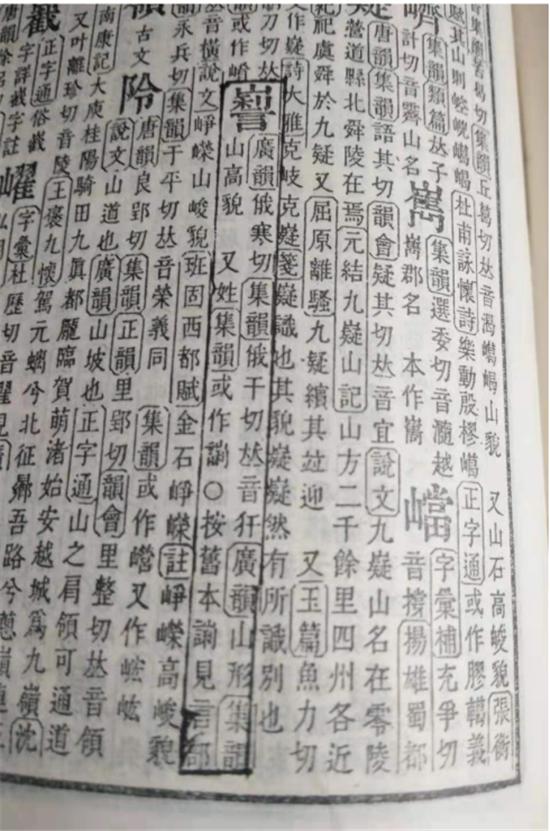 集韻丘葛切𠀤音渴嶱嵑山貌 又山石高峻貌張衡
賦其山則崆㟅嶱嵑 杜甫詠懷詩樂動殷樛嶱 正字通或作膠轕義
嚌 集韻類篇𠀤子計切音霽山名 嶲 集韻選委切音瀡越嶲郡名 本作巂 字彙補充爭切音撐揚雄蜀都
嶷 唐韻集韻語其切韻會疑其切𠀤音宜說文九嶷山名在零陵
營道縣北舜陵在焉元結九嶷山記山方二千餘里四州各近
祀虞舜於九疑又屈原離騷九疑繽其竝迎 又玉篇魚力切
又作嶷詩大雅克岐克嶷箋嶷識也其貌嶷嶷然有所識別也
廣韻俄寒切集韻俄干切𠀤音犴廣韻山形集韻
山高貌 又姓集韻或作 ○按舊本 見言部
𠀤音橫說文崢嶸山峻貌班固西都賦金石崢嶸註崢嶸高峻貌
永兵切集韻于平切𠀤音榮義同 集韻或作 又作
嶺 古文 阾 唐韻良郢切集韻正韻里郢切韻會里整切𠀤音領
說文山道也廣韻山坡也正字通山之肩領可通道
南康記大庾桂陽騎田九眞都龐臨賀萌渚始安越城爲九嶺沈
又叶離珍切音陵王褒九懷駕元螭兮北征曏吾路兮蔥嶺
正字通俗巀字 字彙杜歷切音翟見